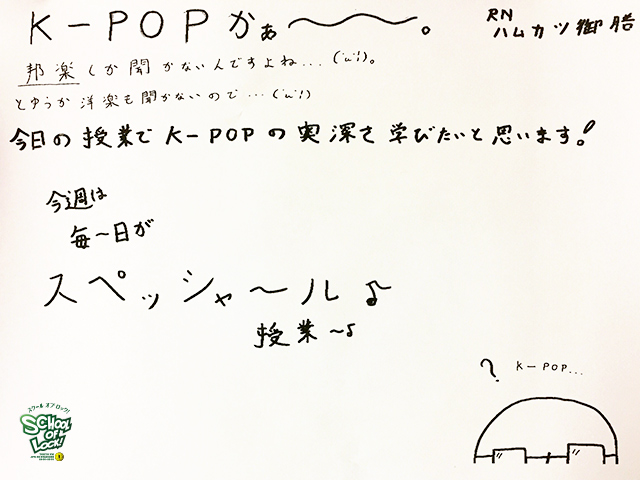 K-POPかぁ〜〜〜。
RN
ハムカツ御膳
邦楽しか聞かないんですよね…(´ω`)。
とゆうか洋楽も聞かないので…(´ω`)
今日の授業でK-POPの奥深さ学びたいと思います!
今週は
毎〜日が
スペッシャ〜ル♪
授業〜♪
? K-POP...
スクール オブ ロック!
SCHOOL
OF
LOCK!